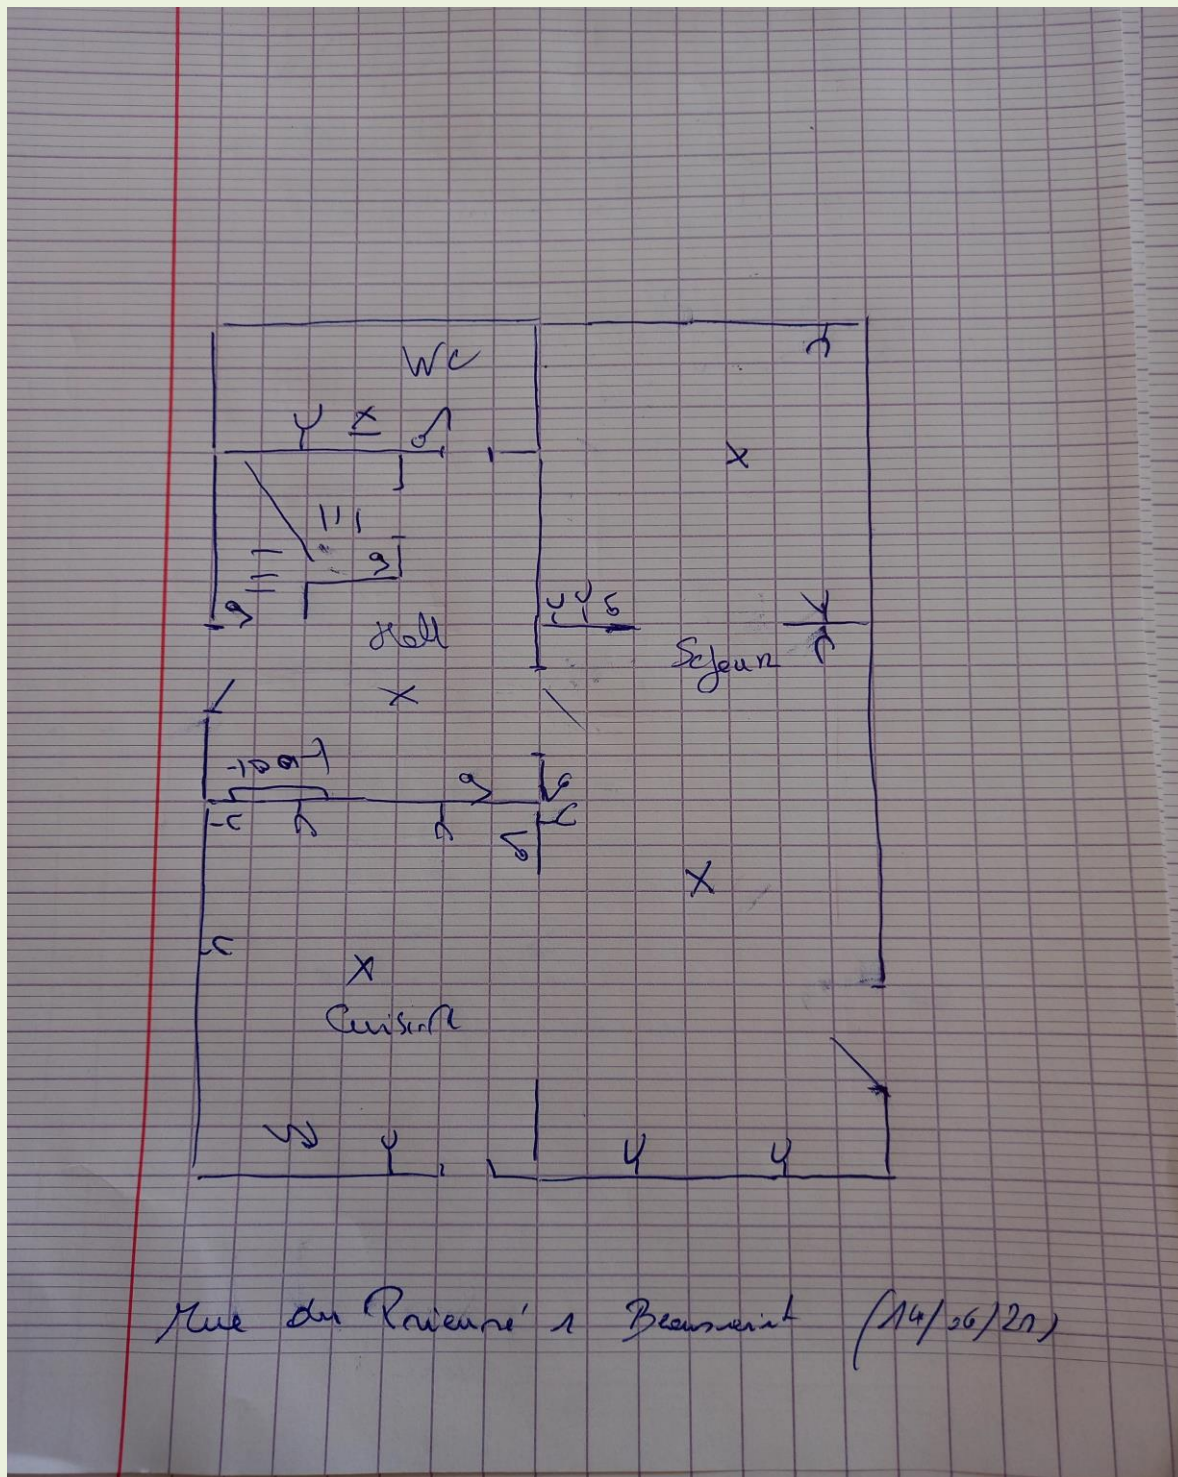 WC
Hall
Séjour
Cuisine
Rue du Prieuré 1 Beausaint (14/06/21)